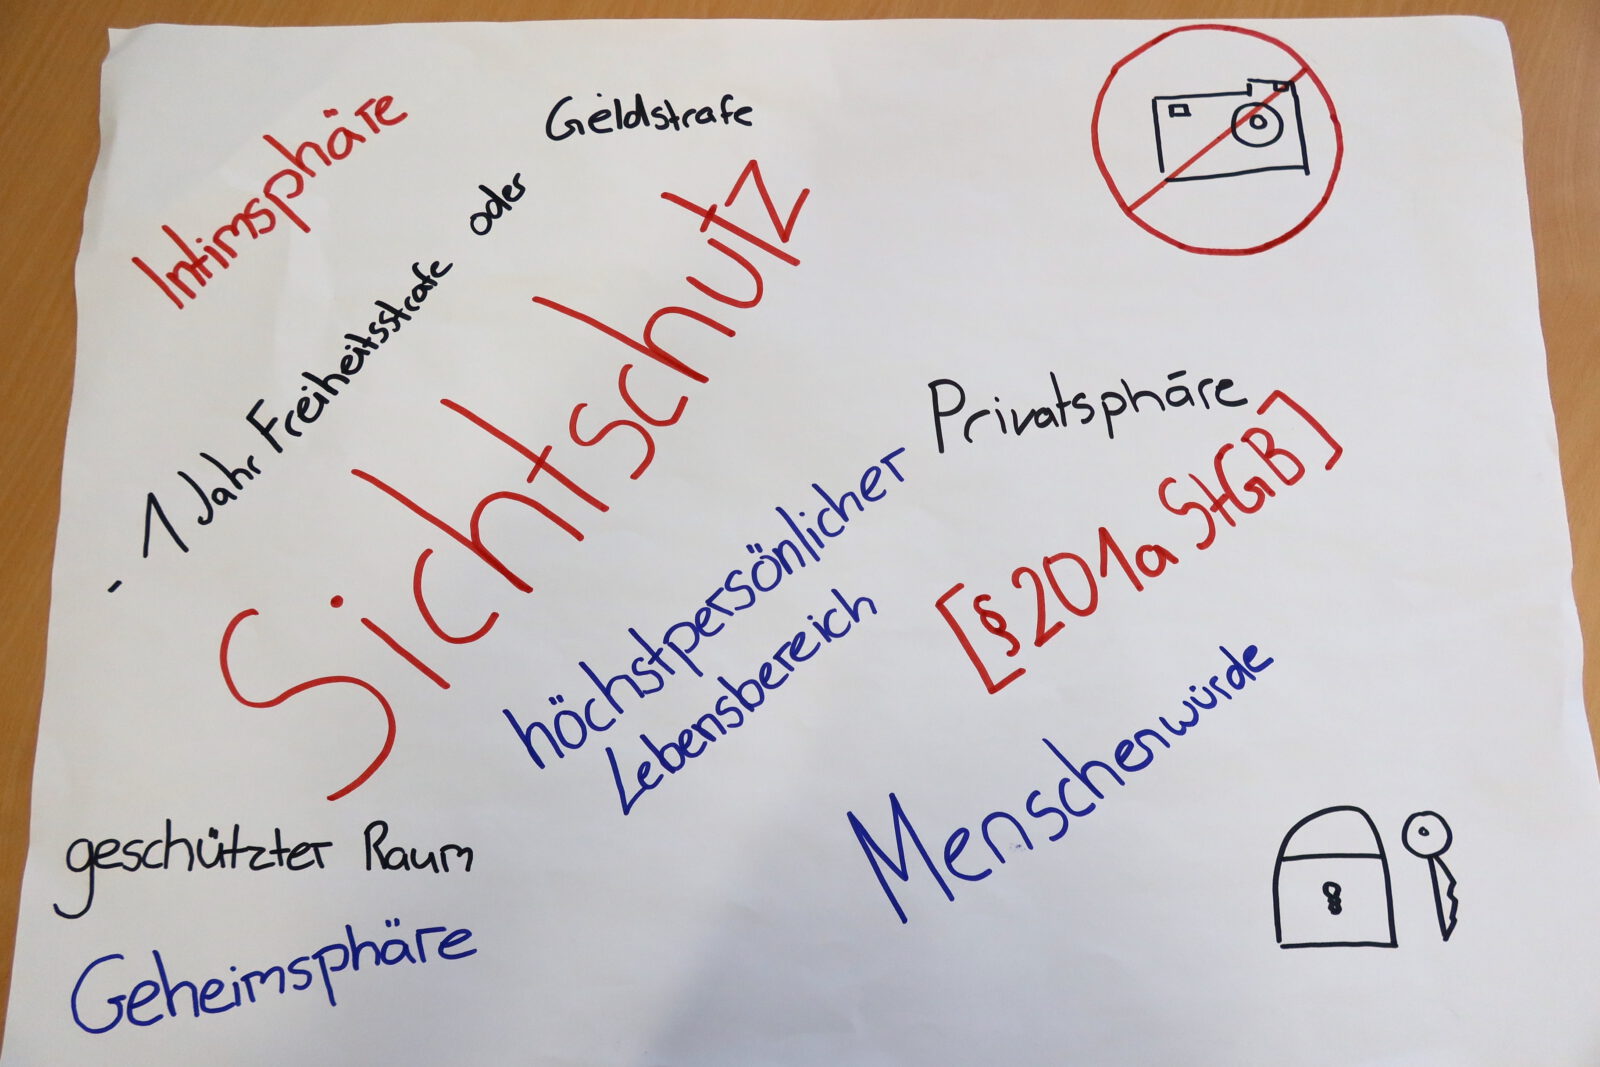 Intimsphäre
- 1 Jahr Freiheitsstrafe oder Geldstrafe
Sichtschutz
Privatsphäre
höchstpersönlicher
Lebensbereich
[§201a StGB]
Menschenwürde
geschützter Raum
Geheimsphäre